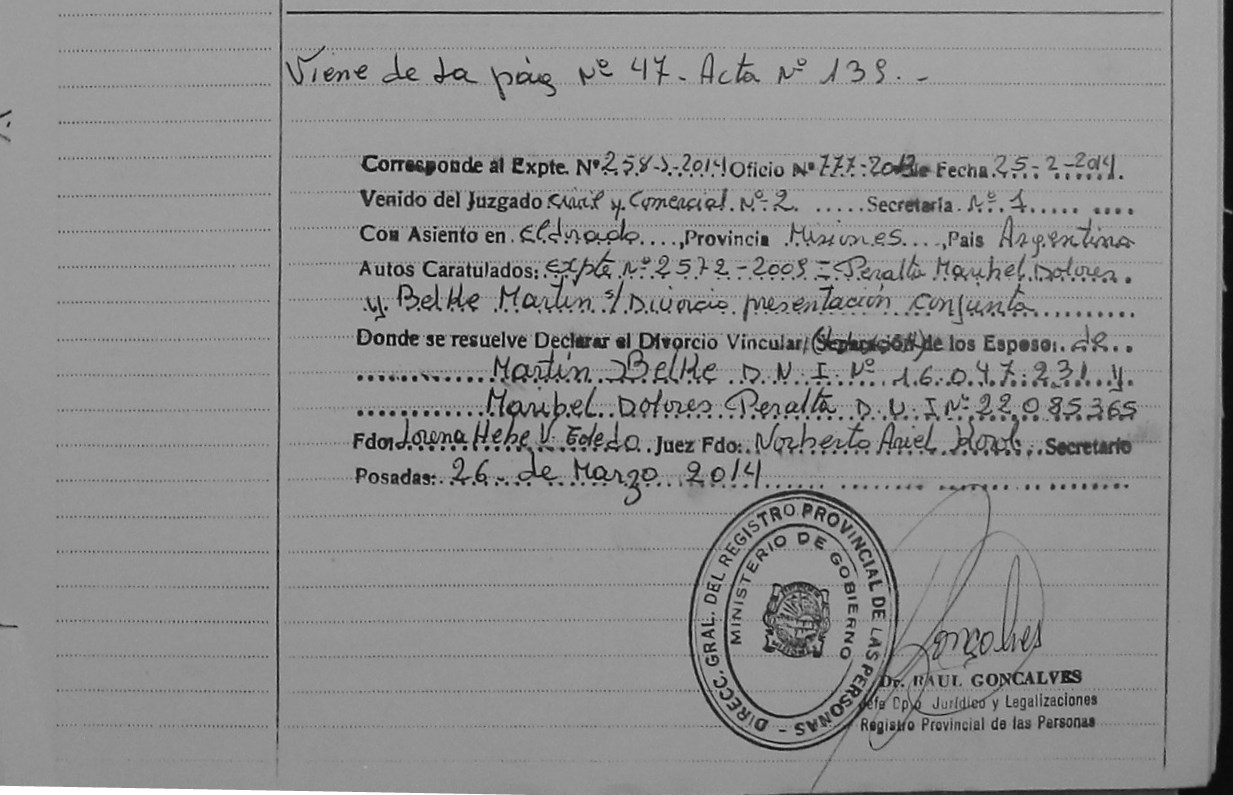 Viene de la pág Nº 47 - Acta Nº 139. -
Corresponde al Expte. Nº 258-J-2014 Oficio Nº 777-2013 de Fecha 25-2-2014.
Venido del Juzgado Civil y Comercial Nº 2. Secretaria Nº 1
Con Asiento en Eldorado, Provincia Misiones, Pais Argentina
Autos Caratulados: expte Nº 2572-2009 - Peralta Maribel Dolores
y Belke Martin s/ Divorcio presentación conjunta
Donde se resuelve Declarar el Divorcio Vincular de los Esposo: de
Martín Belke D.N.I. Nº 16.047.231 y
Maribel Dolores Peralta D.N.I Nº 22.085.365
Fdo: Lorena Hebe V. Juez Fdo: Norberto Ariel Secretario
Posadas: 26 - de Marzo 2014
DIRECC. GRAL. DEL REGISTRO PROVINCIAL DE LAS PERSONAS -
MINISTERIO DE GOBIERNO
Goncalves
Dr. RAUL GONCALVES
Jefe Dpto Jurídico y Legalizaciones
Registro Provincial de las Personas